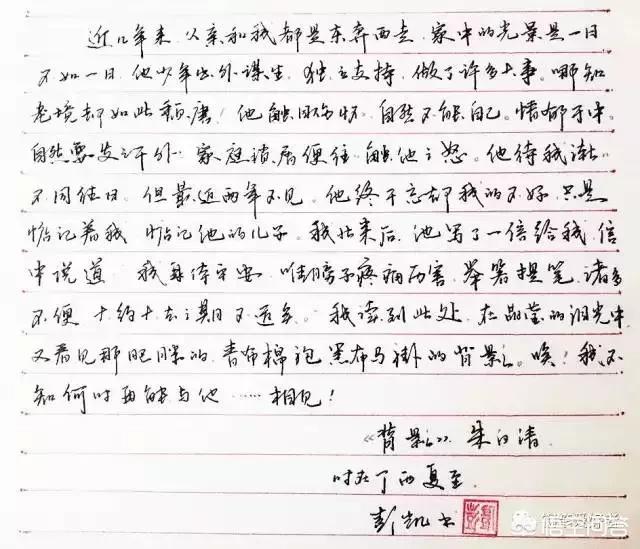 近几年来，父亲和我都是东奔西走，家中的光景是一日
不如一日，他少年出外谋生，独立支持，做了许多大事。哪知
老境却如此颓唐！他触目伤怀，自然不能自已。情郁于中，
自然要发之于外，家庭琐屑便往往触他之怒。他待我渐渐
不同往日。但最近两年不见，他终于忘却我的不好，只是
惦记着我，惦记他的儿子。我北来后，他写了一信给我，信
中说道，我身体平安，唯膀子疼痛厉害，举箸提笔，诸多
不便，大约大去之期不远矣。我读到此处，在晶莹的泪光中
又看见那肥胖的，青布棉袍黑布马褂的背影。唉！我不
知何时再能与他……相见！
《背影》朱自清
时在丁酉夏至
彭凯书